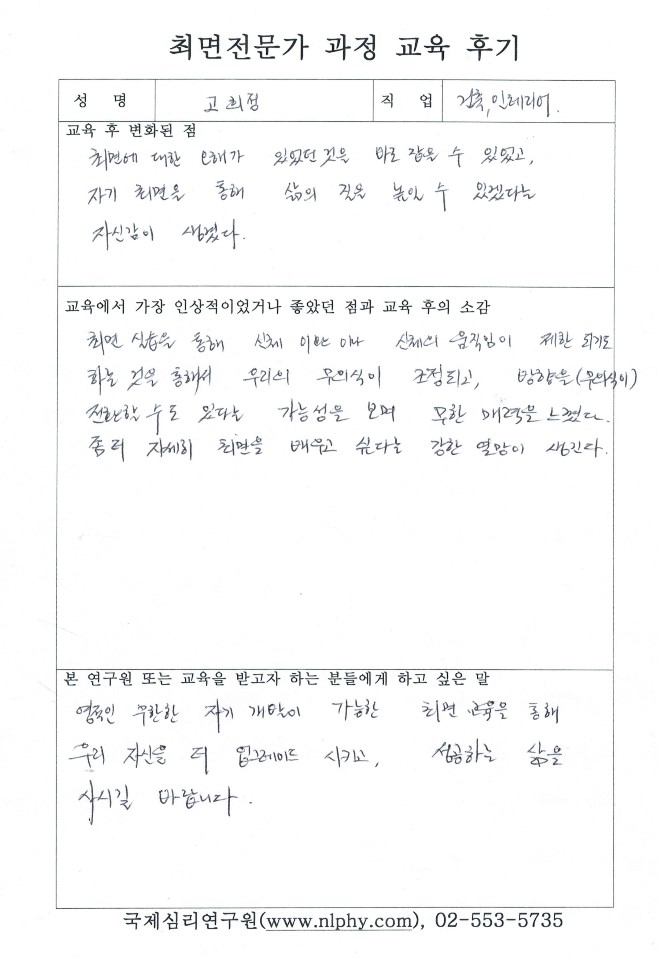 최면전문가 과정 교육 후기
성 명 고희정 직 업 건축, 인테리어.
교육 후 변화된 점
최면에 대한 오해가 있었던 것을 바로 잡을 수 있었고,
자기 최면을 통해 삶의 질을 높일 수 있겠다는
자신감이 생겼다.
교육에서 가장 인상적이었거나 좋았던 점과 교육 후의 소감
최면 실습을 통해 신체 이완 이나 신체의 움직임이 제한 되기도
하는 것을 통해서 우리의 무의식이 조정되고, 방향을(무의식이)
전환할 수도 있다는 가능성을 보며 무한 매력을 느꼈다.
좀 더 자세히 최면을 배우고 싶다는 강한 열망이 생긴다.
본 연구원 또는 교육을 받고자 하는 분들에게 하고 싶은 말
영적인 무한한 자기 개발이 가능한 최면 교육을 통해
우리 자신을 더 업그레이드 시키고, 성공하는 삶을
사시길 바랍니다.
국제심리연구원(www.nlphy.com), 02-553-5735